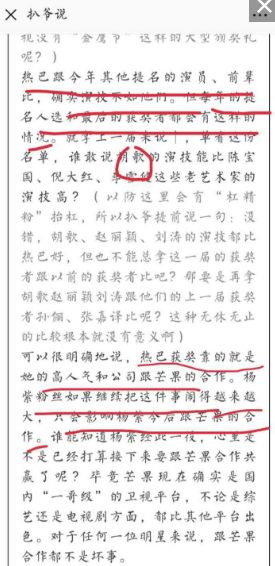 扒爷说
视没有“金鹰节”这样的大型颁奖礼
呢？）
热巴跟今年其他提名的演员、前辈
比，确实演技不如他们。但每年的提
名人选和最后的获奖者都会有这样的
情况。就拿上一届来说，单看这份
名单，谁敢说胡歌的演技能比陈宝
国、倪大红、李雪健这些老艺术家的
演技高？（以防这里会有“杠精
粉”抬杠，所以扒爷提前说一句：没
错，胡歌、赵丽颖、刘涛的演技都比
热巴好，但也不能总拿这一届的获奖
者跟以前的获奖者比吧？那要是再拿
胡歌赵丽颖刘涛跟他们的上一届获奖
者孙俪、张嘉译比呢？这种无休无止
的比较根本就没有意义啊）
可以很明确地说，热巴获奖靠的就是
她的高人气和公司跟芒果的合作。杨
紫粉丝如果继续把这件事闹得越来越
大，只会影响杨紫今后跟芒果的合
作。谁能知道杨紫经此一役，心里是
不是已经打算接下来要跟芒果合作共
赢了呢？毕竟芒果现在确实是国
内“一哥级”的卫视平台，不论是综
艺还是电视剧方面，都比其他平台出
色。对于任何一位明星来说，跟芒果
合作都不是坏事。